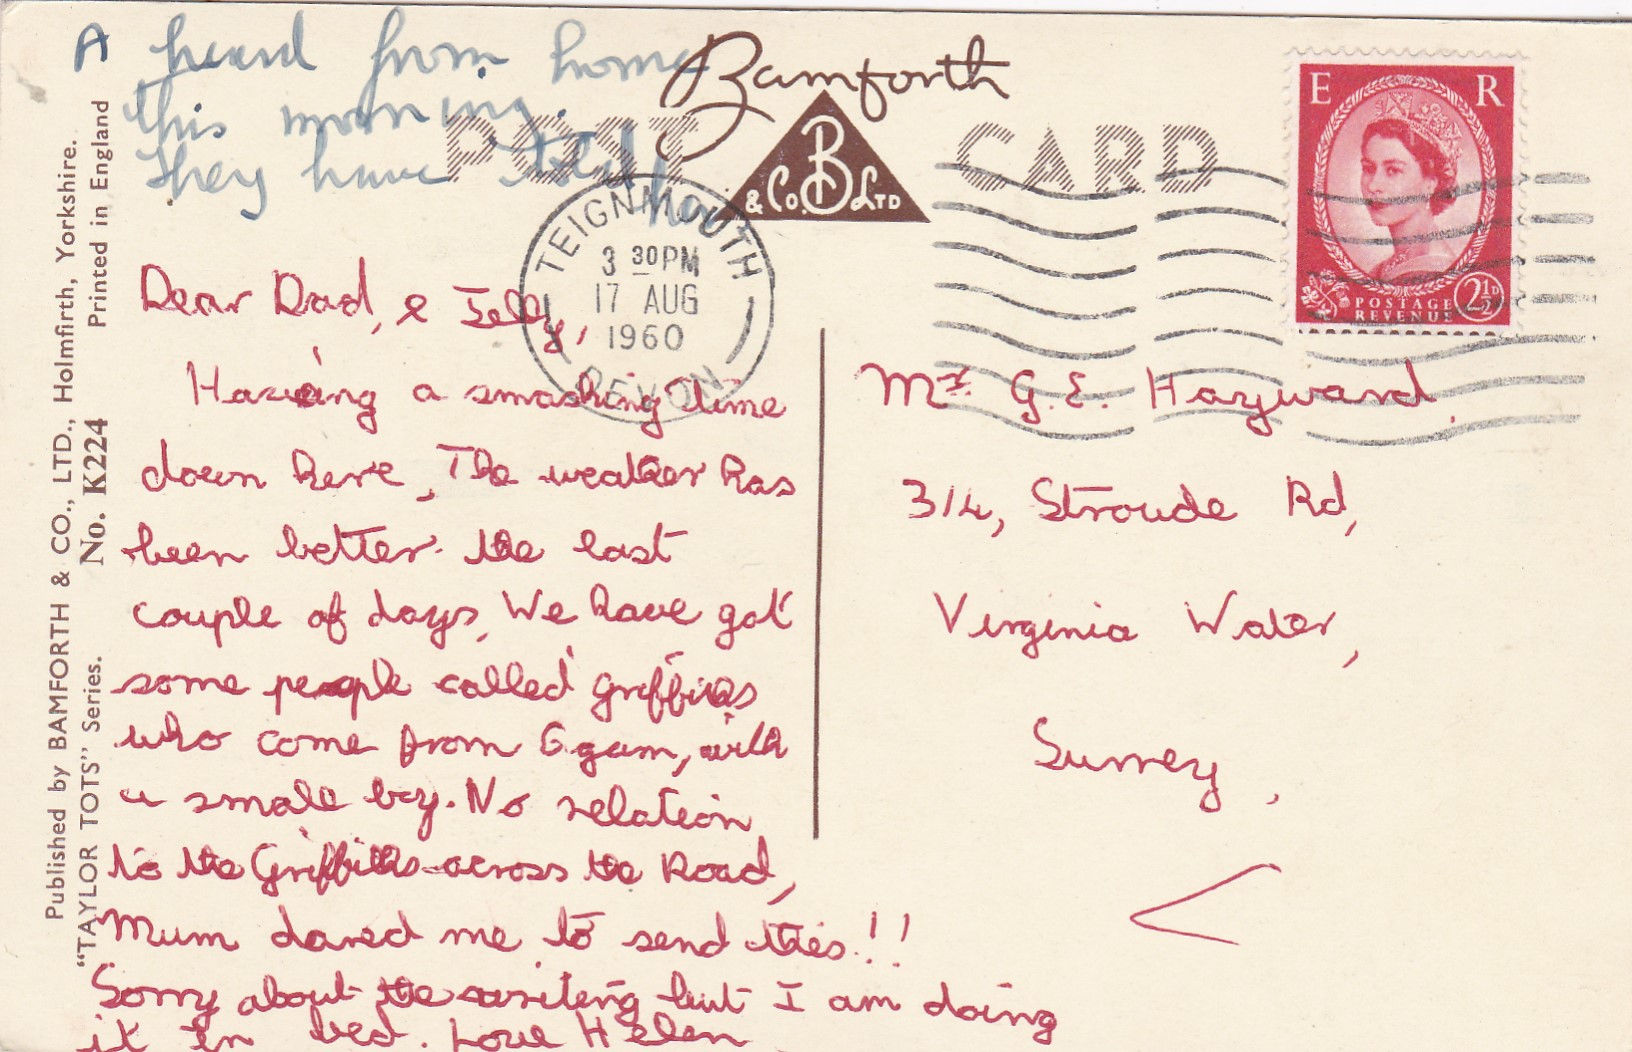 A heard from home
this morning.
They have
Bamforth
POST CARD
B
& Co. LTD
E R
POSTAGE
REVENUE
2½D
TEIGNMOUTH
3 30PM
17 AUG
1960
DEVON
Published by BAMFORTH & CO., LTD., Holmfirth, Yorkshire.
"TAYLOR TOTS" Series. No. K224 Printed in England
Dear Dad, &
Having a smashing time
down here, The weather has
been better the last
couple of days, We have got
some people called Griffiths
who come from Egam, with
a small boy. No relation
to the Griffiths across the Road,
Mum dared me to send this!!
Sorry about the writing but I am doing
it in bed. Love Helen
Mr. G.E. Hayward,
314, Stroude Rd,
Virginia Water,
Surrey,